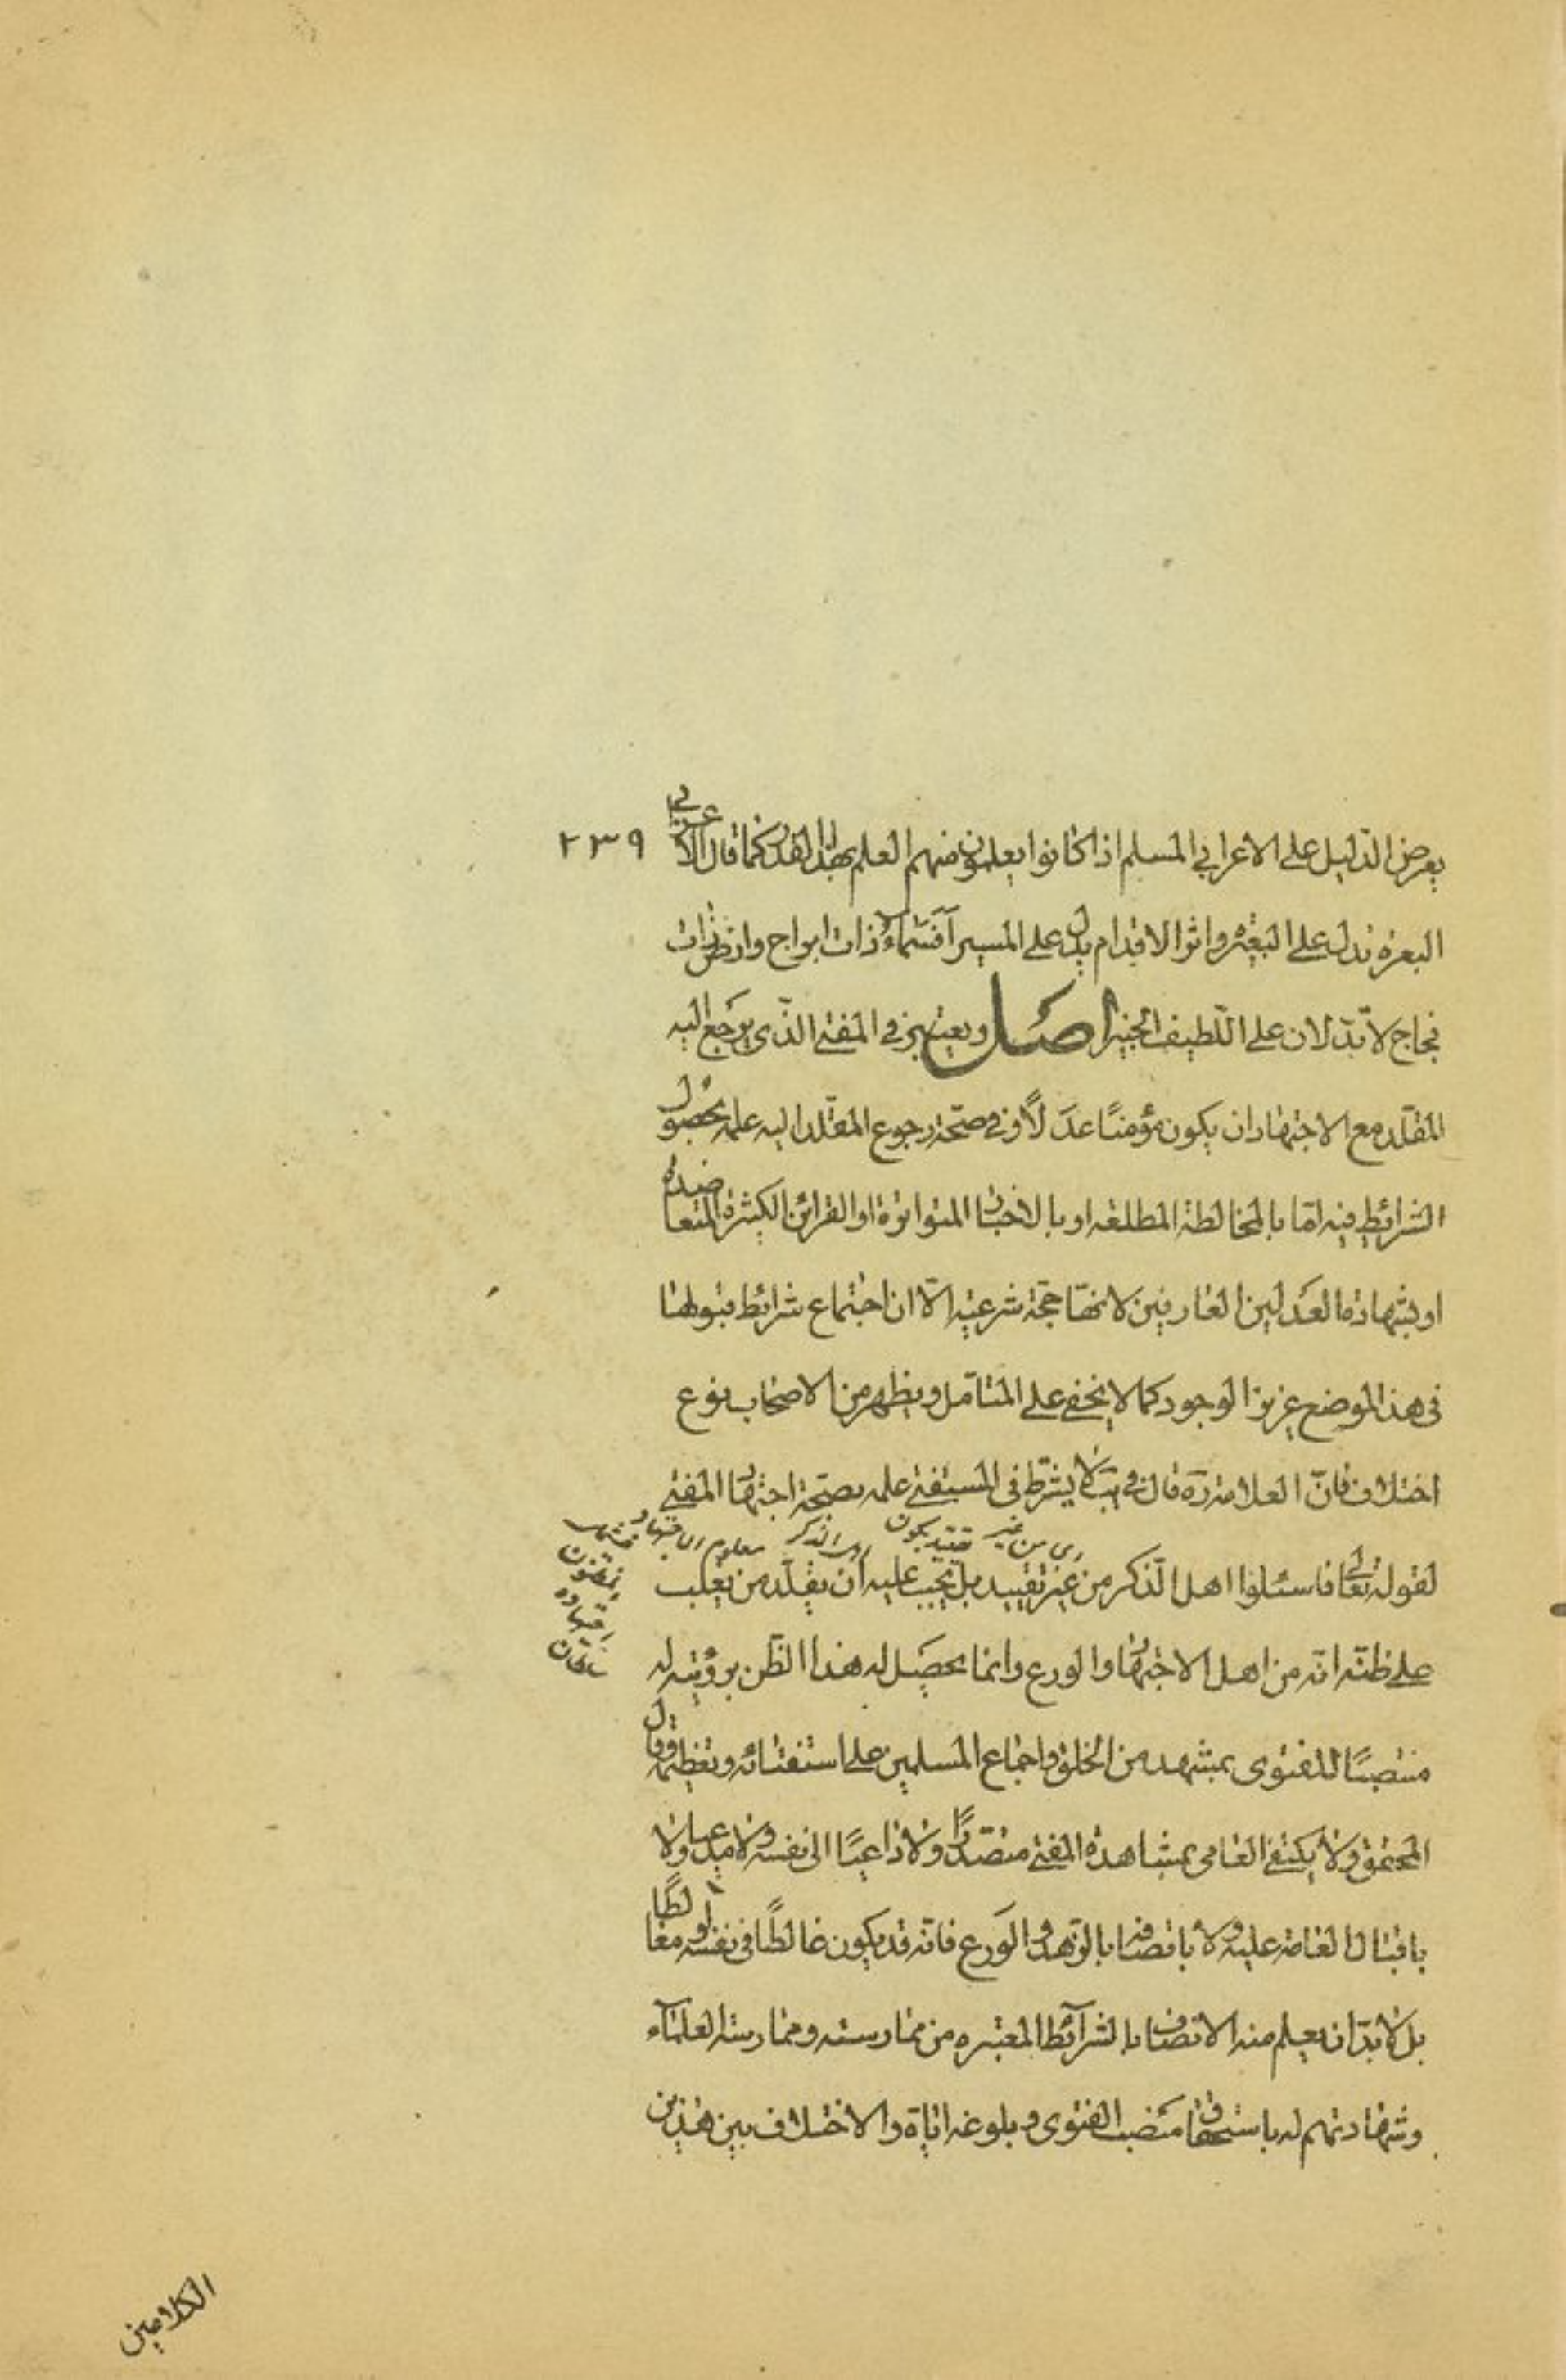 ٢٣٩
يعرض الدليل على الاعرابي المسلم اذا كانوا يعلمون منهم العلم بهذا القدر كما قال الاعرابي
البعرة تدل على البعير واثر الاقدام يدل على المسير أفسماء ذات ابراج وارض ذات
فجاج لا تدلان على اللطيف الخبير اصل ويعتبر في المفتى الذى يرجع اليه
المقلد مع الاجتهاد ان يكون مؤمنًا عدلًا وفي صحة رجوع المقلد اليه علمه بحصول
الشرائط فيه امّا بالمخالطة المطلعه او بالاخبار المتواترة او القرائن الكثيرة المتعاضدة
او بشهادة العدلين العارفين لانها حجة شرعيه الّا ان اجتماع شرائط قبولها
فى هذا الموضع عزيز الوجود كما لا يخفى على المتامل ويظهر من الاصحاب نوع
اختلاف فانّ العلامة ره قال في يب لا يشترط فى المستفتى علمه بصحة اجتهاد المفتى
لقوله تعالى فاسئلوا اهل الذكر من غير تقييد بل يجب عليه ان يقلد من يغلب
اى من غير تقييد بكون اهل الذكر معلوم الاجتهاد
على ظنه انه من اهل الاجتهاد والورع وانما يحصل له هذا الظن برؤيته له
منتصبًا للفتوى بمشهد من الخلق واجتماع المسلمين على استفتائه وتعظيمه وقال
المحقق ولا يكتفى العامى بمشاهدة المفتى متصدرًا ولا داعيًا الى نفسه ولا مدعيا ولا
باقبال العامة عليه ولا باتصافه بالزهد والورع فانه قد يكون غالطًا فى نفسه او مغالطًا
بل لا بدّ ان يعلم منه الاتصاف بالشرائط المعتبره من ممارسته وممارسة العلماء
وشهادتهم له باستحقاق منصب الفتوى وبلوغه اياه والاختلاف بين هذين
الكلامين